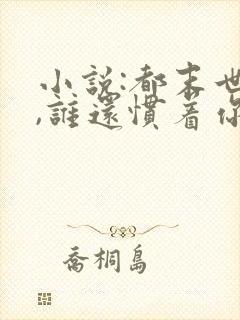 小說:都末世
,誰還慣着你
喬桐島